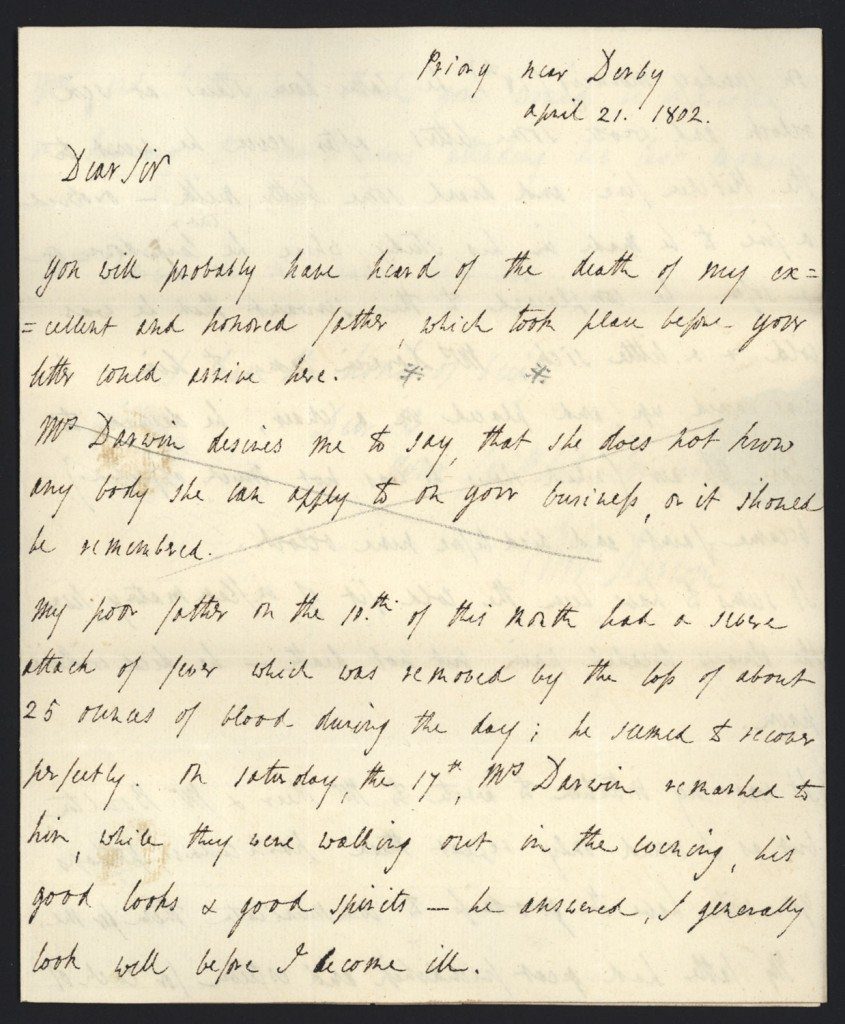 Priory near Derby
april 21. 1802.
Dear Sir
You will probably have heard of the death of my ex=
=cellent and honored father, which took place before your
letter could arrive here. * *
Mrs Darwin desires me to say, that she does not know
any body she can apply to on your business, or it should
be remembered.
My poor father on the 10.th of this month had a severe
attack of fever which was removed by the loss of about
25 ounces of blood during the day; he seemed to recover
perfectly. On saturday, the 17th, Mrs Darwin remarked to
him, while they were walking out in the evening, his
good looks & good spirits — he answered, I generally
look well before I become ill.